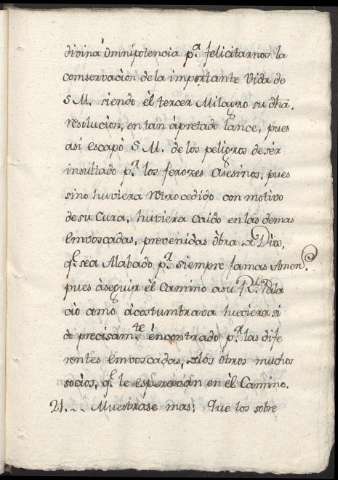 divina omnipotencia p.ª felicitarnos la
conservacion de la importante Vida de
S.M. siendo el tercer Milagro su dha
resolucion, en tan apretado lance, pues
asi escapó S.M. de los peligros de ser
insultado p.ʳ los ferozes Asesinos, pues
si no huviera retrocedido con motivo
de su Cura, huviera caido en las demas
emvoscadas, prevenidas obra de Dios,
q.ᵉ sea Alabado p.ª siempre jamas Amen.
pues á seguir el Camino a su R.ˡ Pala
cio como acostumbrava huviera si
do precisam.ᵗᵉ encontrado p.ʳ las dife
rentes emvoscadas, de los otros muchos
socios, q.ᵉ le esperavan en el Camino.
21... Muestrase mas; Que los sobre